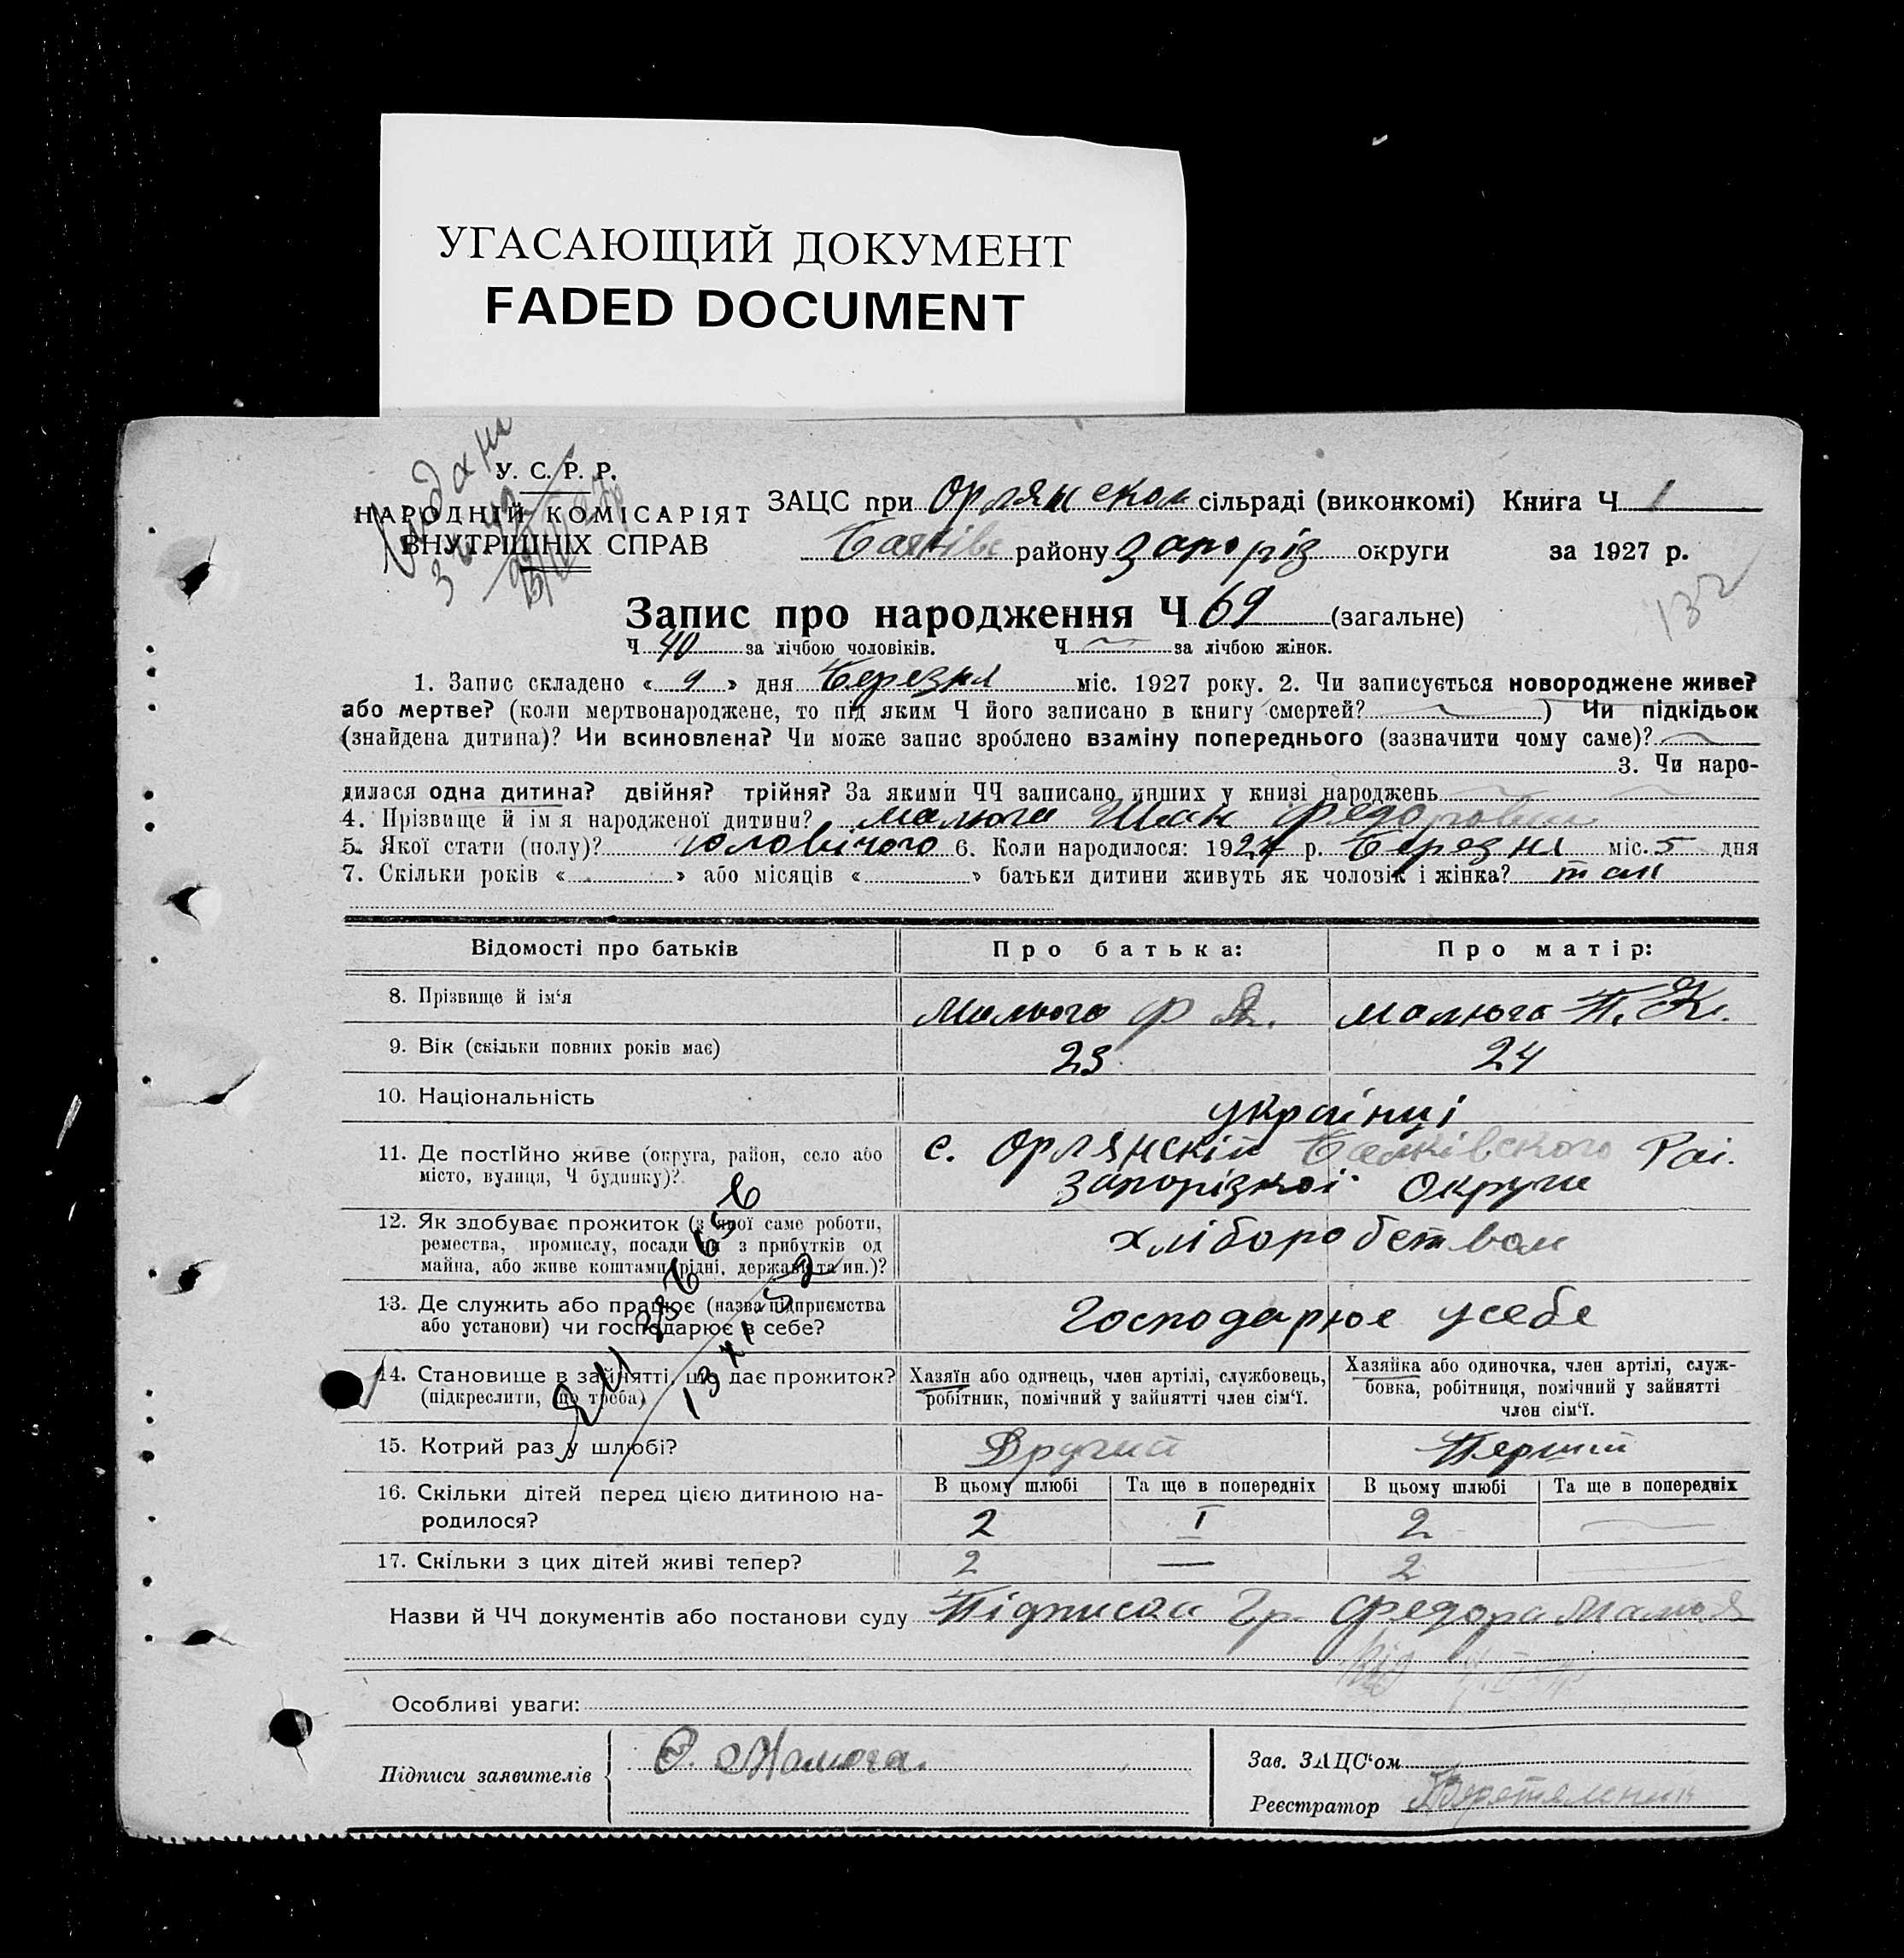 УГАСАЮЩИЙ ДОКУМЕНТ
FADED DOCUMENT
У. С. Р. Р.
НАРОДНІЙ КОМІСАРІЯТ
ВНУТРІШНІХ СПРАВ
ЗАЦС при Орлянскол сільраді (виконкомі) Книга Ч 1
району Запоріз округи за 1927 р.
132
Запис про народження Ч 69 (загальне)
Ч 40 за лічбою чоловіків. Ч за лічбою жінок.
1. Запис складено « 9 » дня Березня міс. 1927 року. 2. Чи записується новороджене живе?
або мертве? (коли мертвонароджене, то під яким Ч його записано в книгу смертей? ) Чи підкідьок
(знайдена дитина)? Чи всиновлена? Чи може запис зроблено взаміну попереднього (зазначити чому саме)?
3. Чи наро-
дилася одна дитина? двійня? трійня? За якими ЧЧ записано инших у книзі народжень
4. Прізвище й ім'я народженої дитини? Малюга Іван Федорович
5. Якої стати (полу)? чоловічого 6. Коли народилося: 1927 р. Березня міс. 5 дня
7. Скільки років « » або місяців « » батьки дитини живуть як чоловік і жінка? так
Відомості про батьків Про батька: Про матір:
8. Прізвище й ім'я Малюга Ф Я. Малюга П. К.
9. Вік (скільки повних років має) 23 24
10. Національність українці
11. Де постійно живе (округа, район, село або с. Орлянскій Балківского Рай.
місто, вулиця, Ч будинку)? Запорізкоі Округи
12. Як здобуває прожиток (з якої саме роботи,
ремества, промислу, посади чи з прибутків од хліборобством
майна, або живе коштами рідні, держави та ин.)?
13. Де служить або працює (назва підприємства Господарює усебе
або установи) чи господарює в себе?
14. Становище в зайнятті, що дає прожиток? Хазяїн або одинець, член артілі, службовець, Хазяйка або одиночка, член артілі, служ-
(підкреслити, що треба) робітник, помічний у зайнятті член сім'ї. бовка, робітниця, помічний у зайнятті
член сім'ї.
15. Котрий раз у шлюбі? Другий Перший
16. Скільки дітей перед цією дитиною на- В цьому шлюбі Та ще в попередніх В цьому шлюбі Та ще в попередніх
родилося? 2 I 2 —
17. Скільки з цих дітей живі тепер? 2 — 2 —
Назви й ЧЧ документів або постанови суду Підписка Гр. Федора
Особливі уваги:
Підписи заявителів Ф. Малюга.
Зав. ЗАЦС'ом
Реєстратор